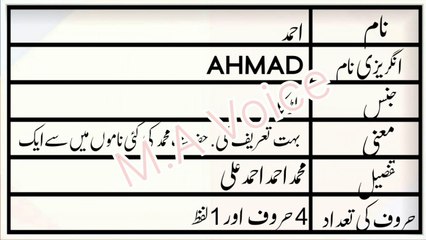 نام احمد
انگریزی نام AHMAD
جنس
معنی بہت تعریف کی محمد کی کئی ناموں میں سے ایک
تفصیل محمد احمد احمد علی
حروف کی تعداد 4 حروف اور 1 لفظ
M.A Voice